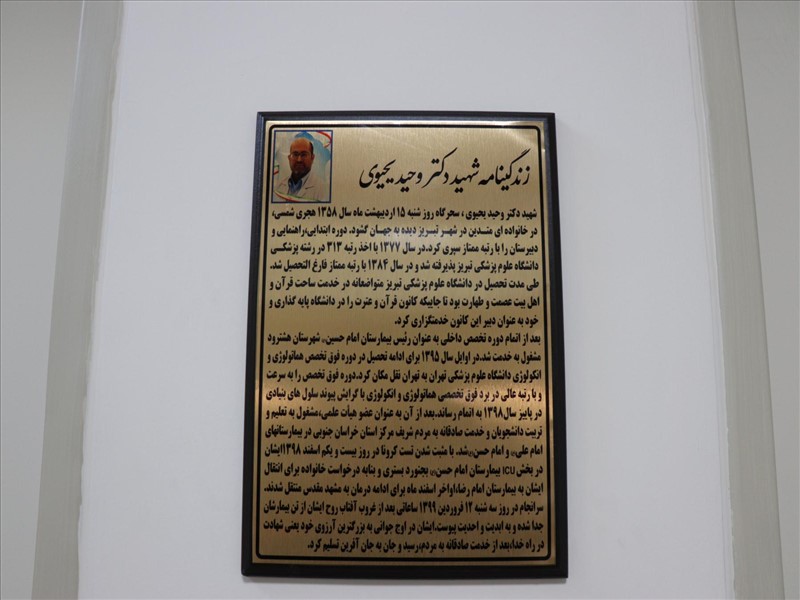 زندگینامه شهید دکتر وحید یحیوی
شهید دکتر وحید یحیوی ، سحرگاه روز شنبه ۱۵ اردیبهشت ماه سال ۱۳۵۸ هجری شمسی،
در خانواده ای متدین در شهر تبریز دیده به جهان گشود. دوره ابتدایی،راهنمایی و
دبیرستان را با رتبه ممتاز سپری کرد.در سال ۱۳۷۷ با اخذ رتبه ۳۱۳ در رشته پزشکی
دانشگاه علوم پزشکی تبریز پذیرفته شد و در سال ۱۳۸۴ با رتبه ممتاز فارغ التحصیل شد.
طی مدت تحصیل در دانشگاه علوم پزشکی تبریز متواضعانه در خدمت ساحت قرآن و
اهل بیت عصمت و طهارت بود تا جاییکه کانون قرآن و عترت را در دانشگاه پایه گذاری و
خود به عنوان دبیر این کانون خدمتگزاری کرد.
بعد از اتمام دوره تخصص داخلی به عنوان رئیس بیمارستان امام حسین شهرستان هشترود
مشغول به خدمت شد.در اوایل سال ۱۳۹۵ برای ادامه تحصیل در دوره فوق تخصص هماتولوژی و
انکولوژی دانشگاه علوم پزشکی تهران به تهران نقل مکان کرد.دوره فوق تخصص را به سرعت
و با رتبه عالی در برد فوق تخصصی هماتولوژی و انکولوژی با گرایش پیوند سلول های بنیادی
در پاییز سال۱۳۹۸ به اتمام رساند.بعد از آن به عنوان عضو هیأت علمی،مشغول به تعلیم و
تربیت دانشجویان و خدمت صادقانه به مردم شریف مرکز استان خراسان جنوبی در بیمارستانهای
امام علی و امام حسن شد. با مثبت شدن تست کرونا در روز بیست و یکم اسفند ۱۳۹۸ایشان
در بخش ICU بیمارستان امام حسن بجنورد بستری و بنابه درخواست خانواده برای انتقال
ایشان به بیمارستان امام رضا،اواخر اسفند ماه برای ادامه درمان به مشهد مقدس منتقل شدند.
سرانجام در روز سه شنبه ۱۲ فروردین ۱۳۹۹ ساعاتی بعد از غروب آفتاب روح ایشان از تن بیمارشان
جدا شده و به ابدیت و احدیت پیوست.ایشان در اوج جوانی به بزرگترین آرزوی خود یعنی شهادت
در راه خدا،بعد از خدمت صادقانه به مردم،رسید و جان به جان آفرین تسلیم کرد.